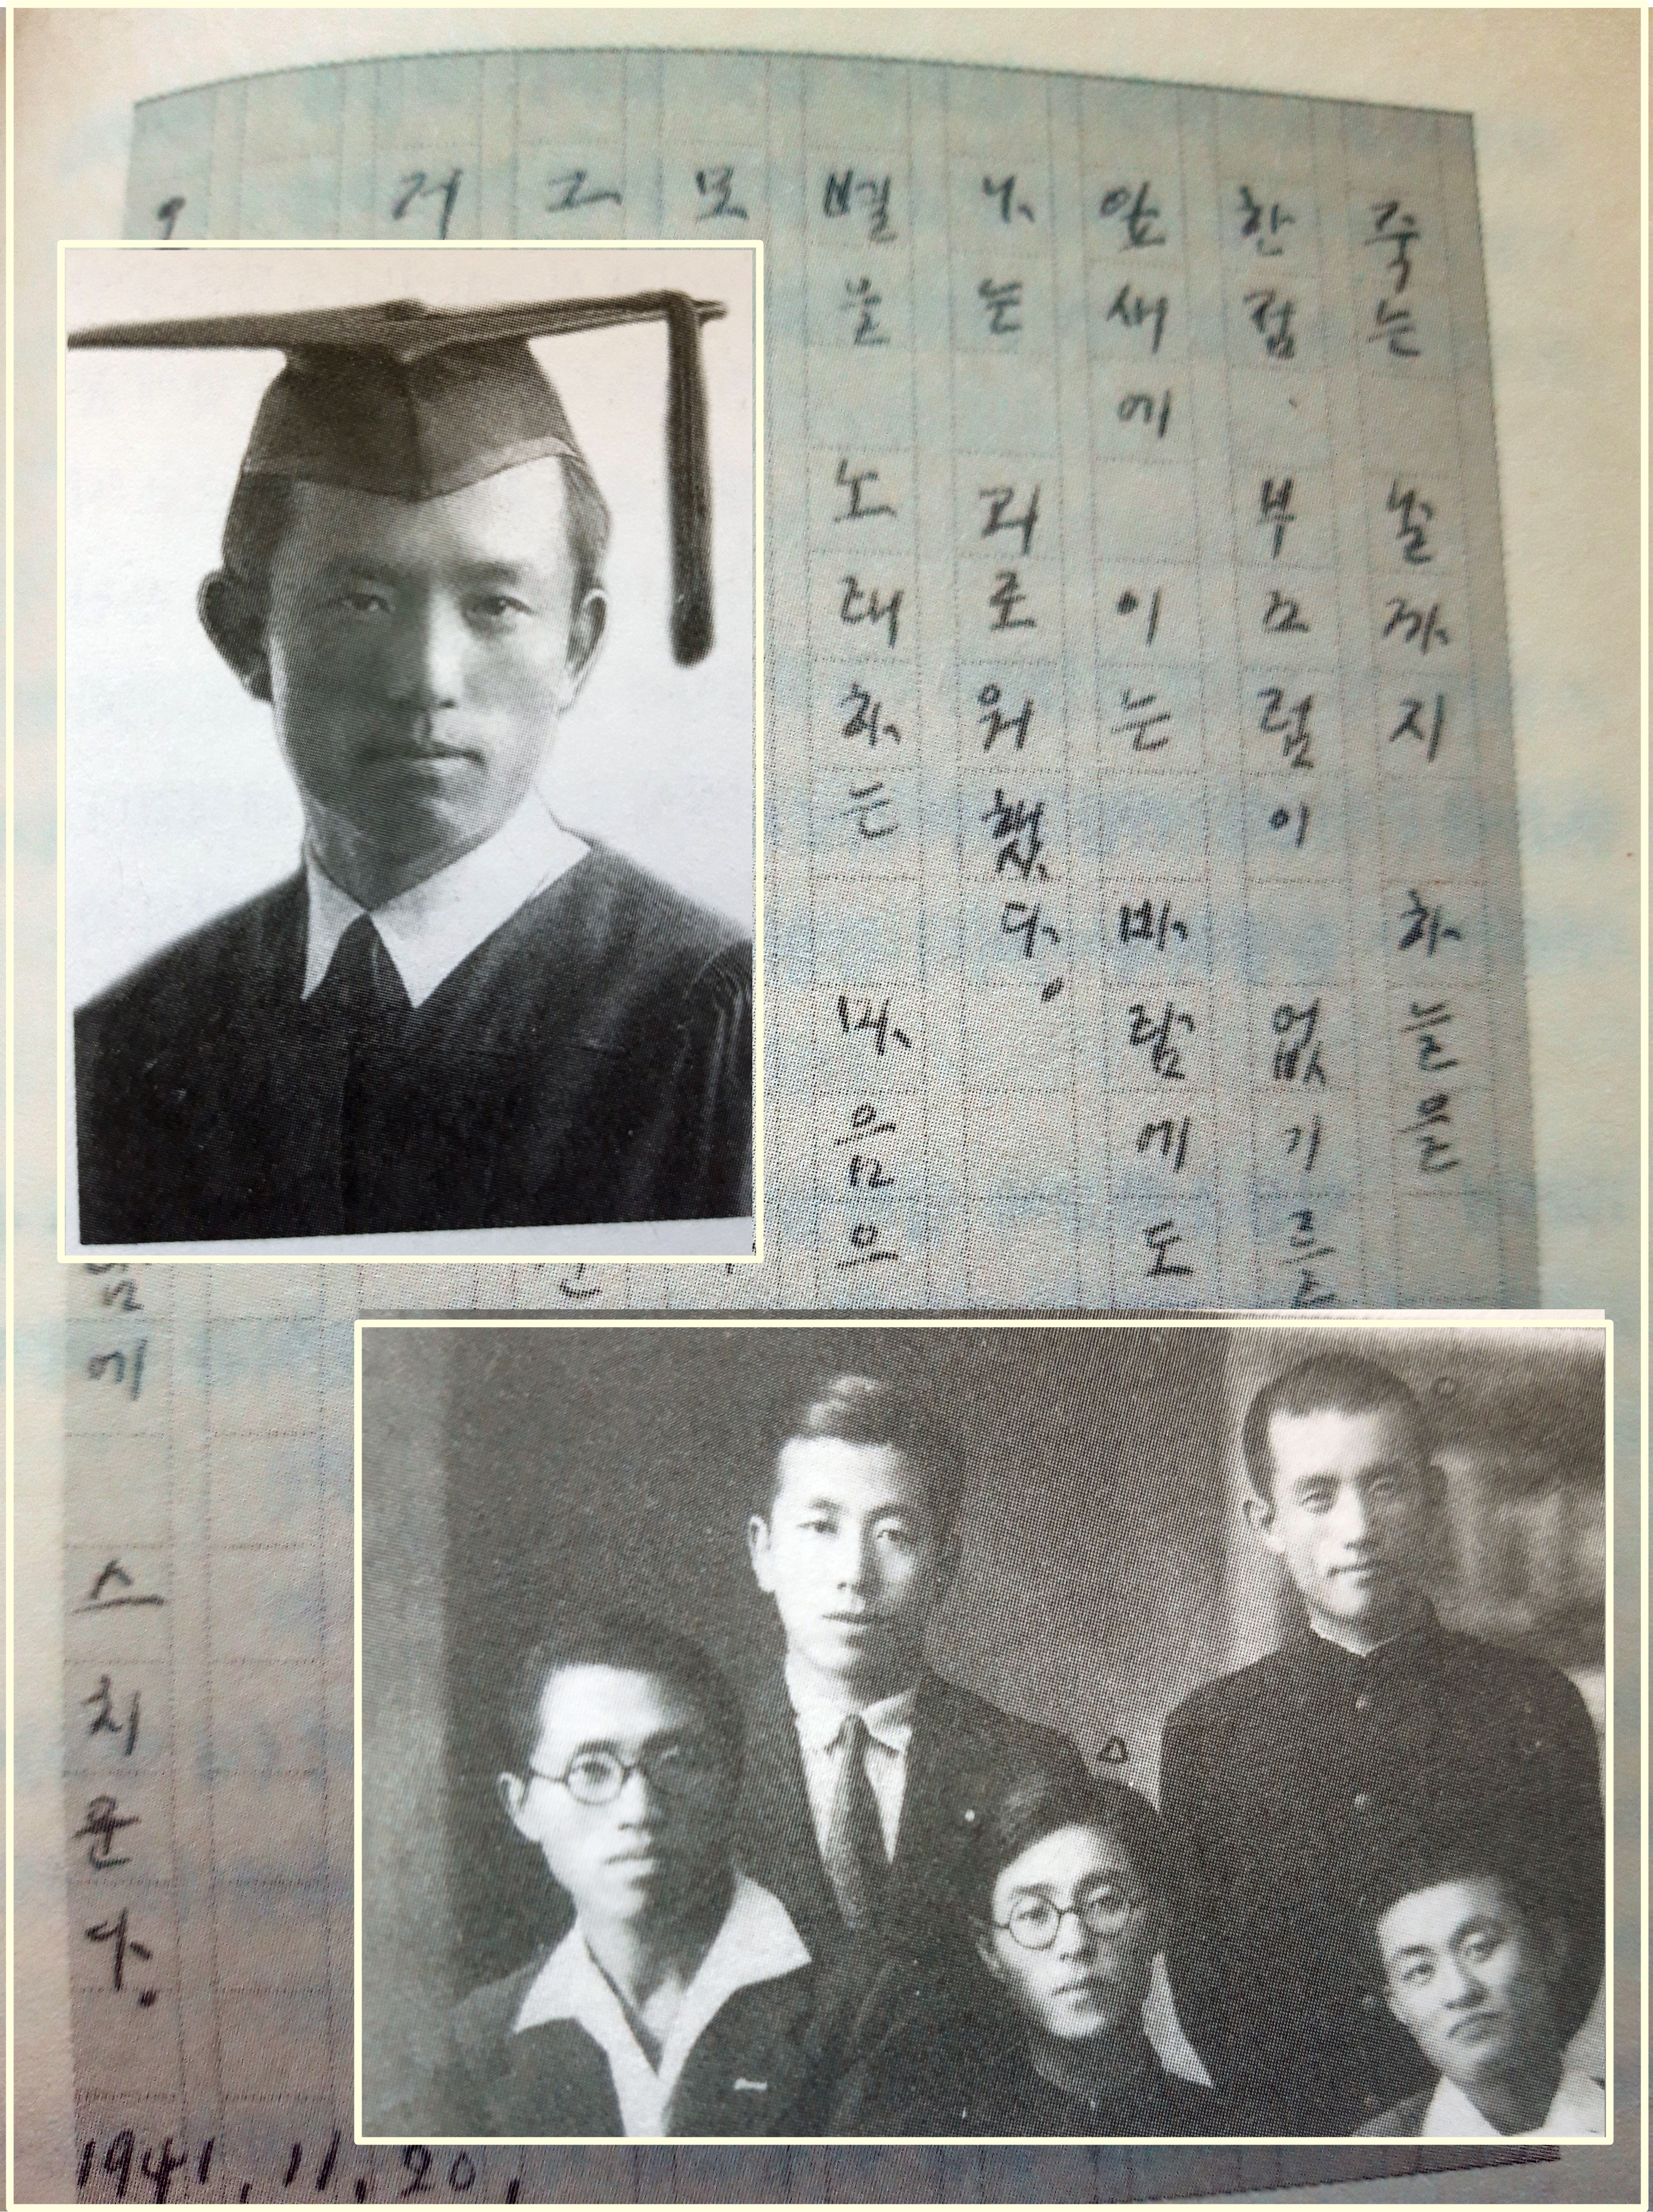 죽는 날까지 하늘을
한점 부끄럼이 없기를
잎새에 이는 바람에도
나는 괴로워했다.
별을 노래하는 마음으
모
그
거
에 스치운다.
1941. 11. 20.